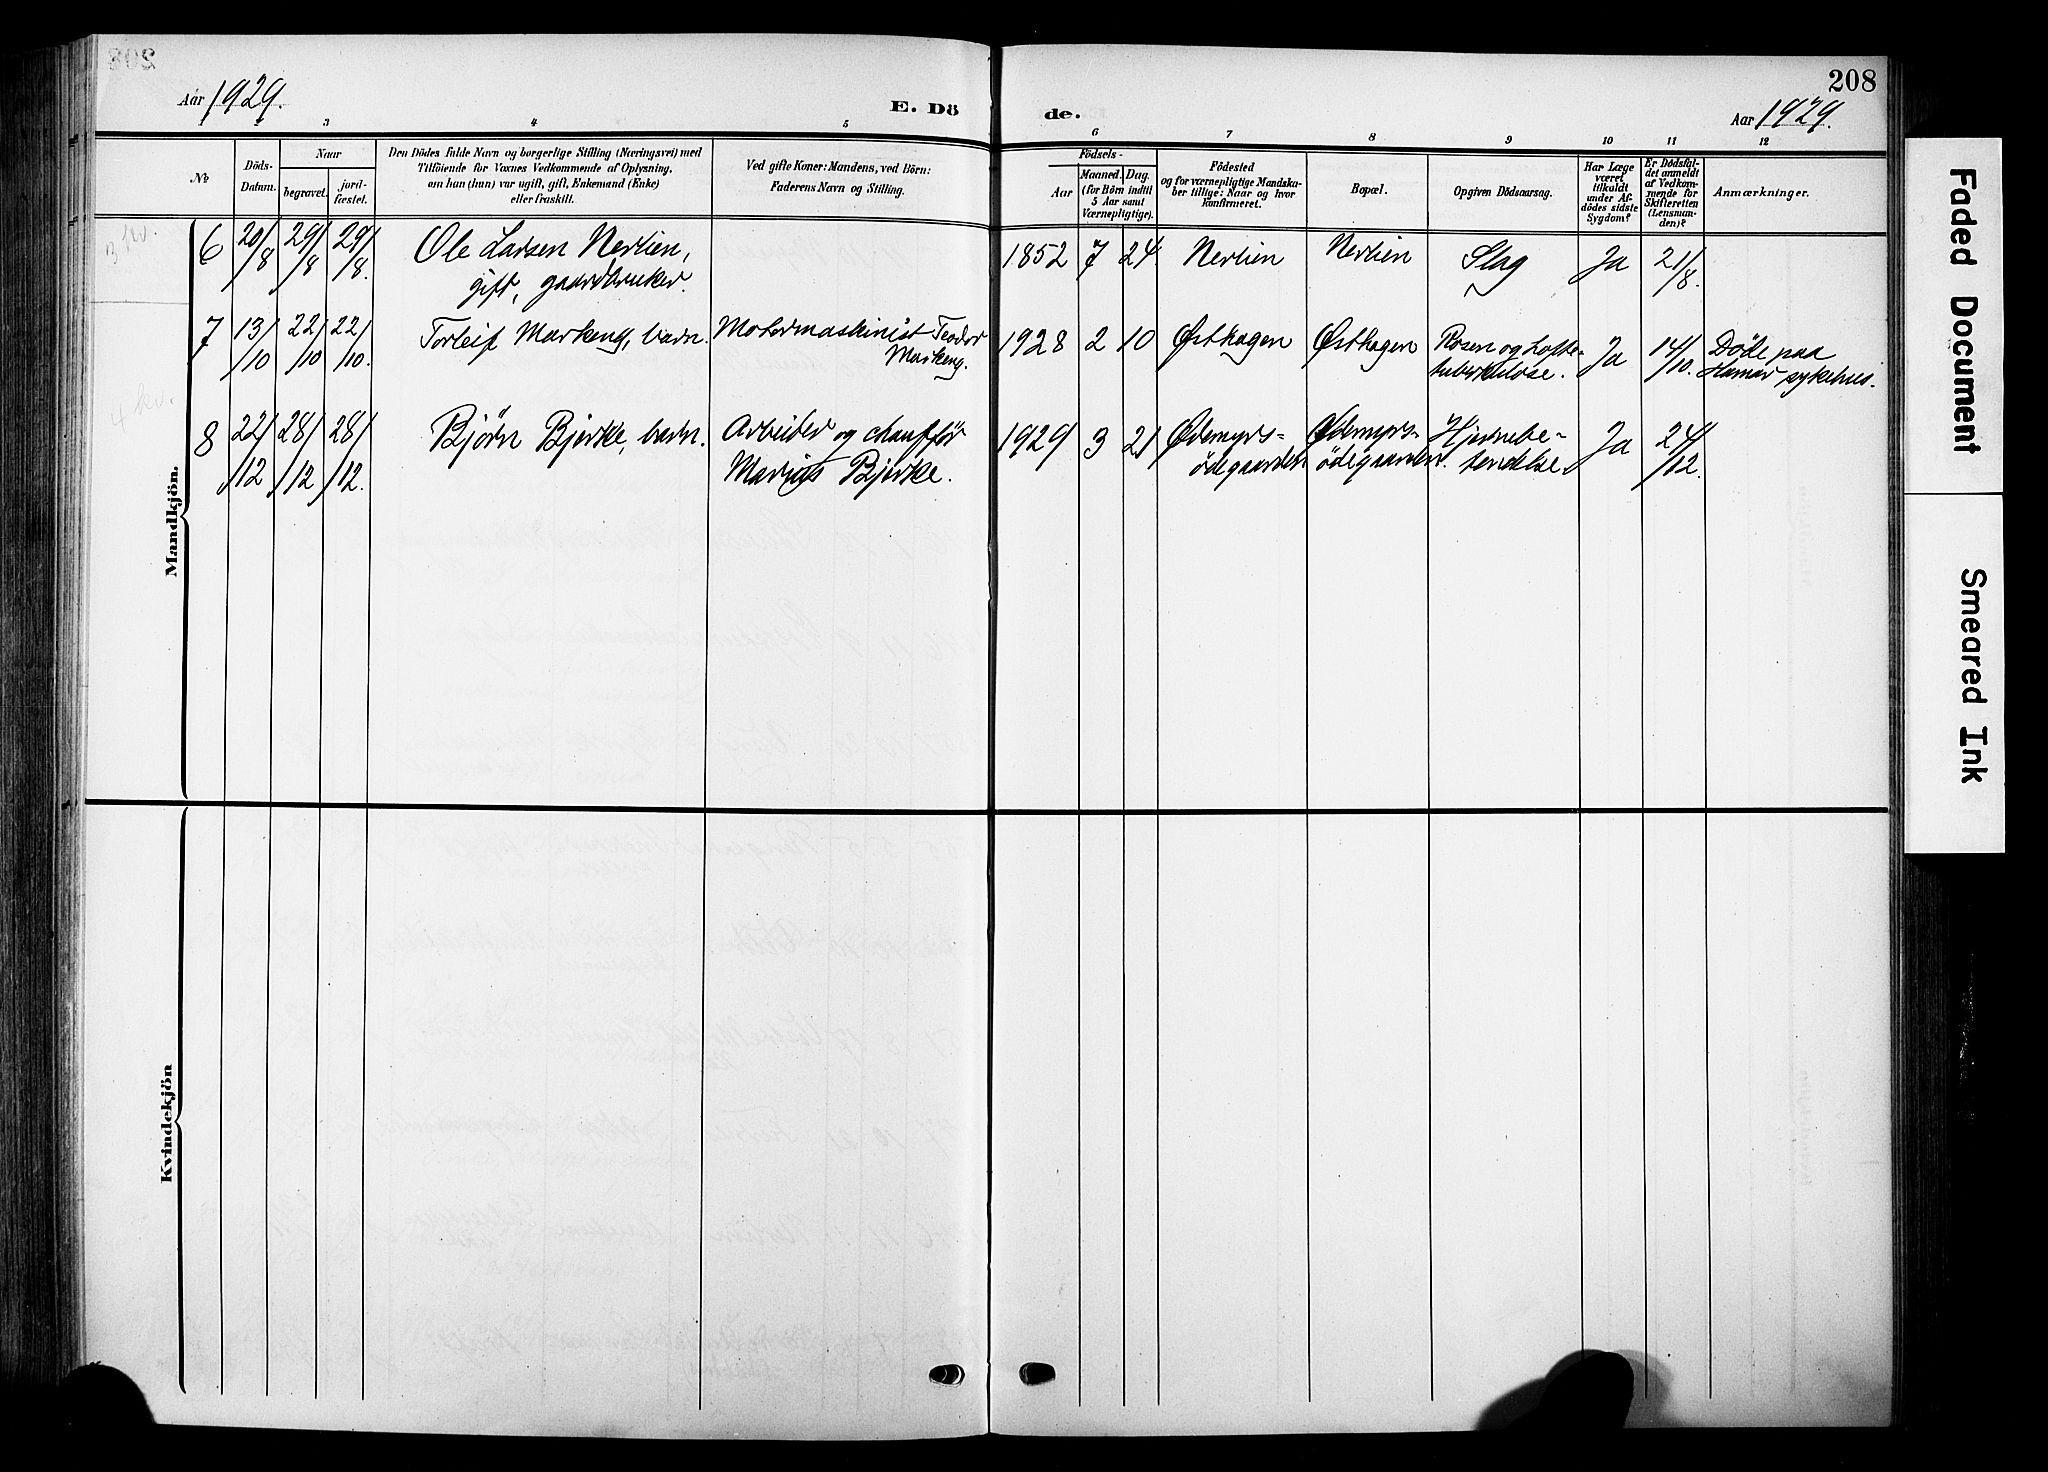 208
Aar 1929.
E. Dö
de.
Aar 1929.
1 2 3 4 5 6 7 8 9 10 11 12
No
Döds-
Datum.
Naar
begravet.
jord-
fæstet.
Den Dödes fulde Navn og borgerlige Stilling (Næringsvei) med
Tilföiende for Voxnes Vedkommende af Oplysning,
om han (hun) var ugift, gift, Enkemand (Enke)
eller fraskilt.
Ved gifte Koner: Mandens, ved Börn:
Faderens Navn og Stilling.
Födsels-
Aar
Maaned. Dag.
(for Börn indtil
5 Aar samt
Værnepligtige).
Födested
og for værnepligtige Mandska-
ber tillige: Naar og hvor
konfirmeret.
Bopæl.
Opgiven Dödsaarsag.
Har Læge
været
tilkaldt
under Af-
dödes sidste
Sygdom?
Er Dödsfal-
det anmeldt
af Vedkom-
mende for
Skifteretten
(Lensman-
den)?
Anmærkninger.
Mandkjön.
6 20/8 29/8 29/8. Ole Larsen Nerlien,
gift, gaardbruker.
1852 7 24. Nerlien Nerlien Slag Ja 21/8.
7 13/10 22/10 22/10. Torleif Markeng, barn. Motormaskinist Teodor
Markeng.
1928 2 10 Østhagen Østhagen Rosen og Lofte-
tuberkulose. Ja 14/10. Döde paa
Hamar sykehus.
4 kv.
8 22/12 28/12 28/12. Bjørn Bjerke, barn. Arbeider og chauffør
Marius Bjerke.
1929 3 21 Ødemyrs-
ödegaarden Ødemyrs-
ödegaarden. Hjernebe-
tendelse Ja 24/12.
Kvindekjön
Faded Document
Smeared Ink